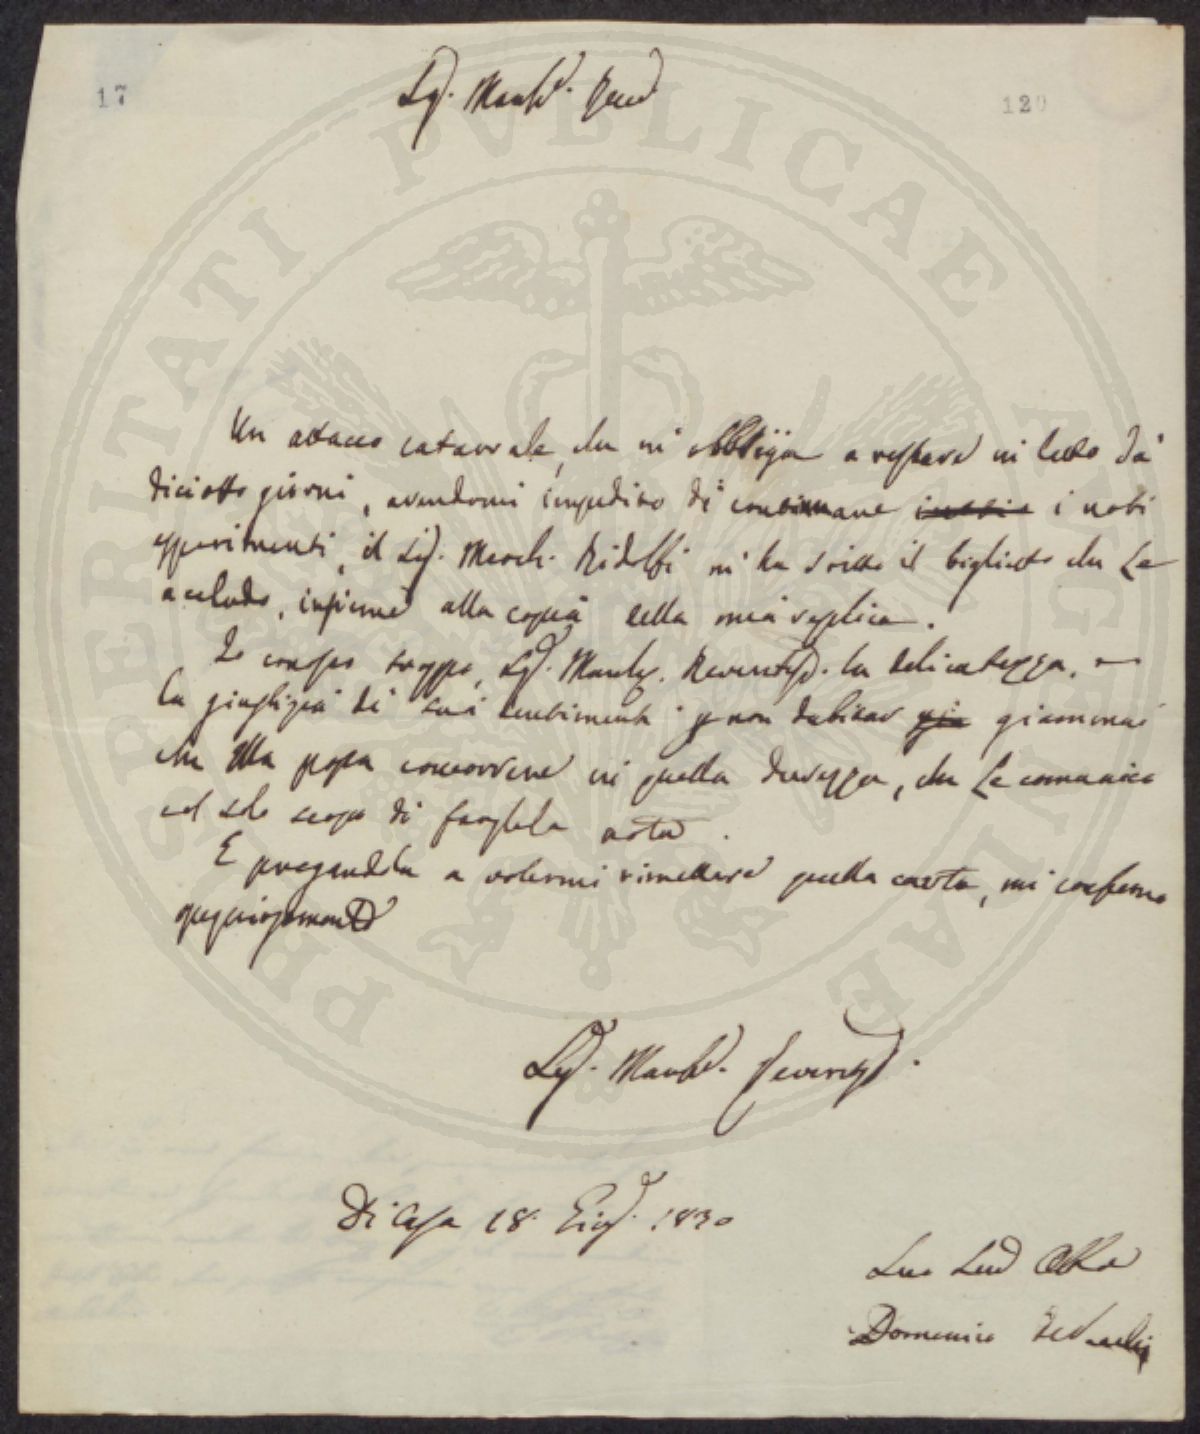 17
120
Sig.r March.e Rev.do
Un attacco catarrale, che mi obbliga a restare in letto da
diciotto giorni, avendomi impedito di continuare i noti
esperimenti, il Sig. March. Ridolfi mi ha scritto il biglietto che Le
accludo, insieme alla copia della mia replica.
Io conosco troppo, Sig. March. Reveritiss. la delicatezza, e
la giustizia de' suoi sentimenti p non dubitar giammai
che Ella possa concorrere in quella durezza, che Le comunico
col solo scopo di farglela nota.
E pregandola a volermi rimettere quella carta, mi confermo
ossequiosamente
Sig. March. Reveritiss.
Di Casa 18. Giug. 1830
Suo Dev Obbo
Domenico
PROSPERITATI PVBLICAE AVGENDAE